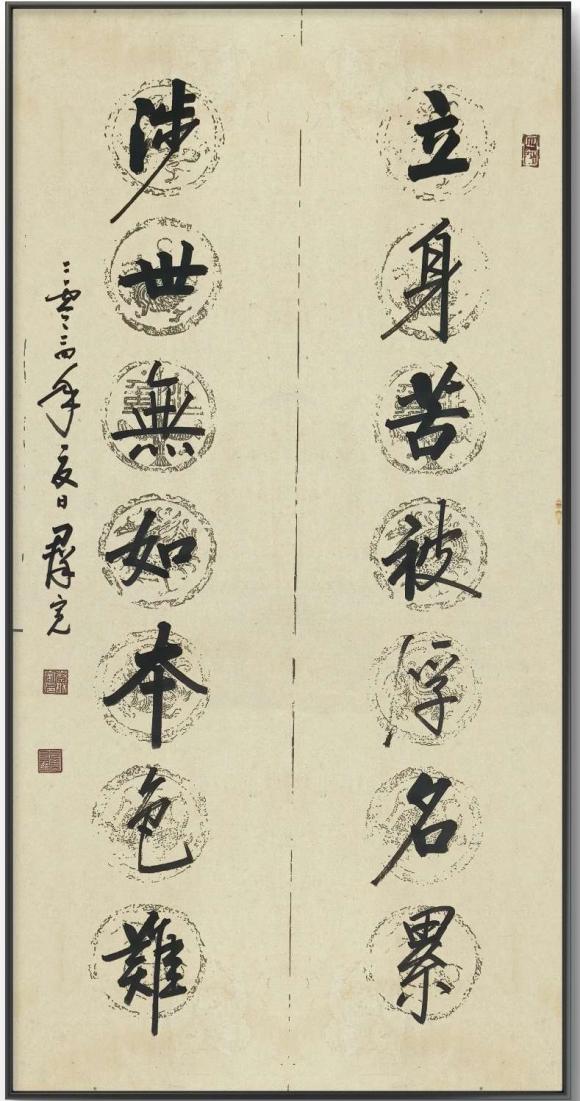 立身苦被浮名累
涉世無如本色難
二零二四年夏日羣亮